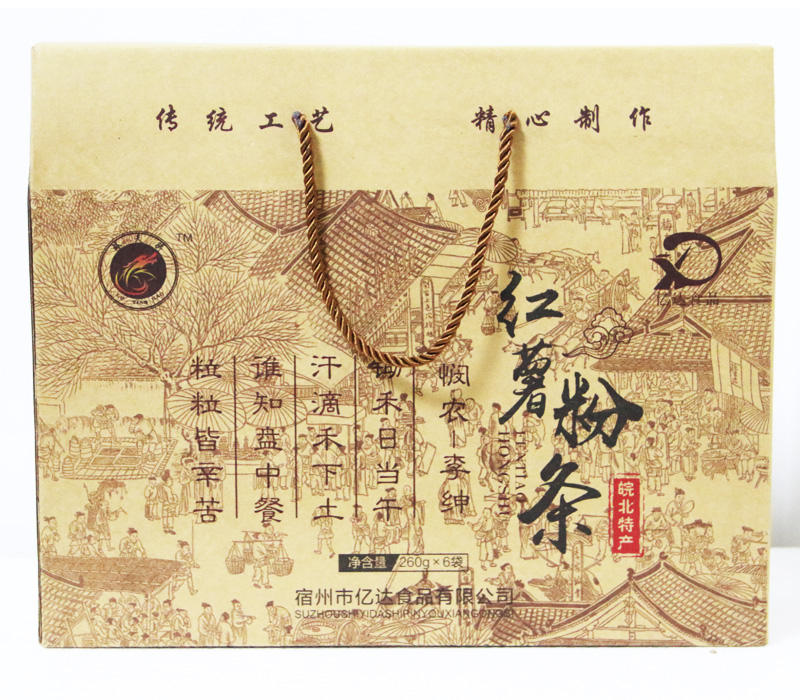 传统工艺
精心制作
TM
红薯粉条
HONGSHU
FENTIAO
皖北特产
悯农-李绅
锄禾日当午
汗滴禾下土
谁知盘中餐
粒粒皆辛苦
净含量 260g×6袋
宿州市亿达食品有限公司
SUZHOUSHIYIDASHIPINYOUXIANGONGSI